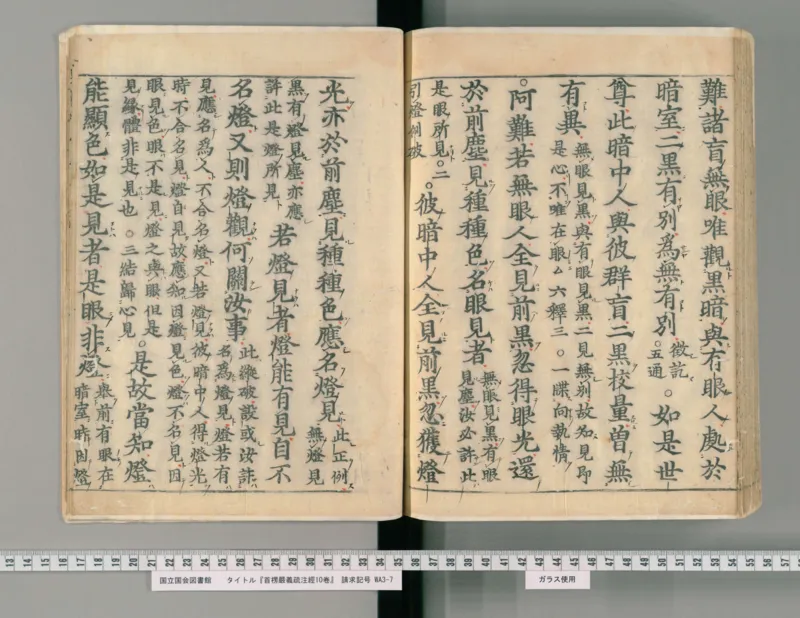 難諸盲無眼唯觀黒暗與有眼人處於
暗室二黒有別為無有別。徵訖
五通。如是世
尊此暗中人與彼群盲二黒挍量曽無
有異無眼見黒與有眼見黒二見無別故知見即
是心不唯在眼么六釋三。一牒向執情
。阿難若無眼人全見前黒忽得眼光還
於前塵見種種色名眼見者無眼見黒有眼
見塵汝必許此
是眼所見。二
引燈例破。彼暗中人全見前黒忽獲燈
光亦於前塵見種種色應名燈見此正例
無燈見
黒有燈見塵亦應
許此是燈所見若燈見者燈能有見自不
名燈又則燈觀何關汝事此縱破設或汝許
名為燈見燈若有
見應名為人不合名燈又若燈見彼暗中人得燈光
時不合名見燈自見故應知因燈見色燈不名見因
眼見色眼不是見燈之與眼但是
見縁體非是見也。三結歸心見。是故當知燈
能顯色如是見者是眼非燈舉前有眼在
暗室時因燈
13 14 15 16 17 18 19 20 21 22 23 24 25 26 27 28 29 30 31 32 33 34 35 36 37 38 39 40 41 42 43 44 45 46 47 48 49 50 51 52 53 54 55 56 57
国立国会図書館 タイトル『首楞嚴義疏注經10巻』 請求記号 WA3-7
ガラス使用